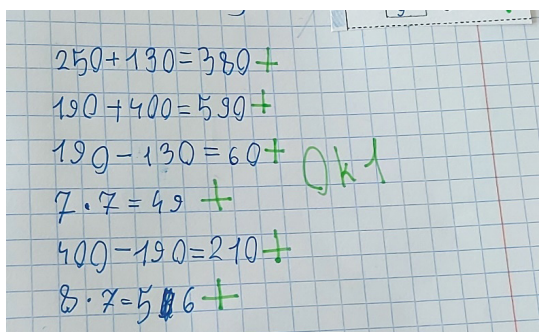 250+130=380+
190+400=590+
190-130=60+
Ok1
7·7=49 +
400-190=210+
8·7=56+